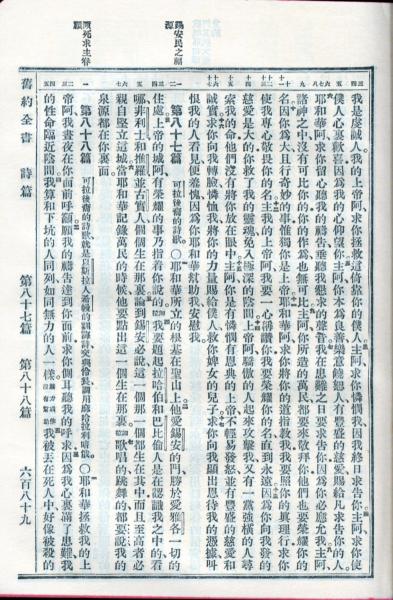 我是虔誠人我的上帝阿求你拯救這倚靠你的僕人主阿求你憐憫我因我終日求告你主阿求你使
僕人心裏歡喜因爲我的心仰望你主阿你本爲良善樂意饒恕人有豐盛的慈愛賜給凡求告你的人
耶和華阿求你留心聽我的禱告垂聽我懇求的聲音我在患難之日要求告你因爲你必應允我主阿
諸神之中沒有可比你的你的作爲也無可比主阿你所造的萬民都要來敬拜你他們也要榮耀你的
名因你爲大且行奇妙的事惟獨你是上帝耶和華阿求你將你的道指教我我要照你的眞理行求你
使我專心敬畏你的名主我的上帝阿我要一心稱讚你我要榮耀你的名直到永遠因爲你向我發的
慈愛是大的你救了我的靈魂免入極深的陰間上帝阿驕傲的人起來攻擊我又有一黨強橫的人尋
索我的命他們沒有將你放在眼中主阿你是有憐憫有恩典的上帝不輕易發怒並有豐盛的慈愛和
誠實求你向我轉臉憐恤我將你的力量賜給僕人救你婢女的兒子求你向我顯出恩待我的憑據叫
恨我的人看見便羞愧因爲你耶和華幫助我安慰我
錫安民之福源
第八十七篇 可拉後裔的詩歌○耶和華所立的根基在聖山上他愛錫安的門勝於愛雅各一切的
住處上帝的城阿有榮耀的事乃指着你說的細拉我要提起拉哈伯和巴比倫人是在認識我之中的看
哪非利士和推羅並古實人個個生在那裏論到錫安必說這一個那一個都生在其中而且至高者必
親自堅立這城當耶和華記錄萬民的時候他要點出這一個生在那裏細拉歌唱的跳舞的都要說我的
泉源都在你裏面
瀕死求主眷顧
第八十八篇 可拉後裔的詩歌就是以斯拉人希幔的訓誨詩交與伶長調用麻哈拉利暗俄○耶和華拯救我的上
帝阿我晝夜在你面前呼籲願我的禱告達到你面前求你側耳聽我的呼求因爲我心裏滿了患難我
的性命臨近陰間我算和下坑的人同列如同無力的人一樣我被丟在死人中好像被殺的
舊約全書 詩篇 第八十七篇 第八十八篇 六百八十九